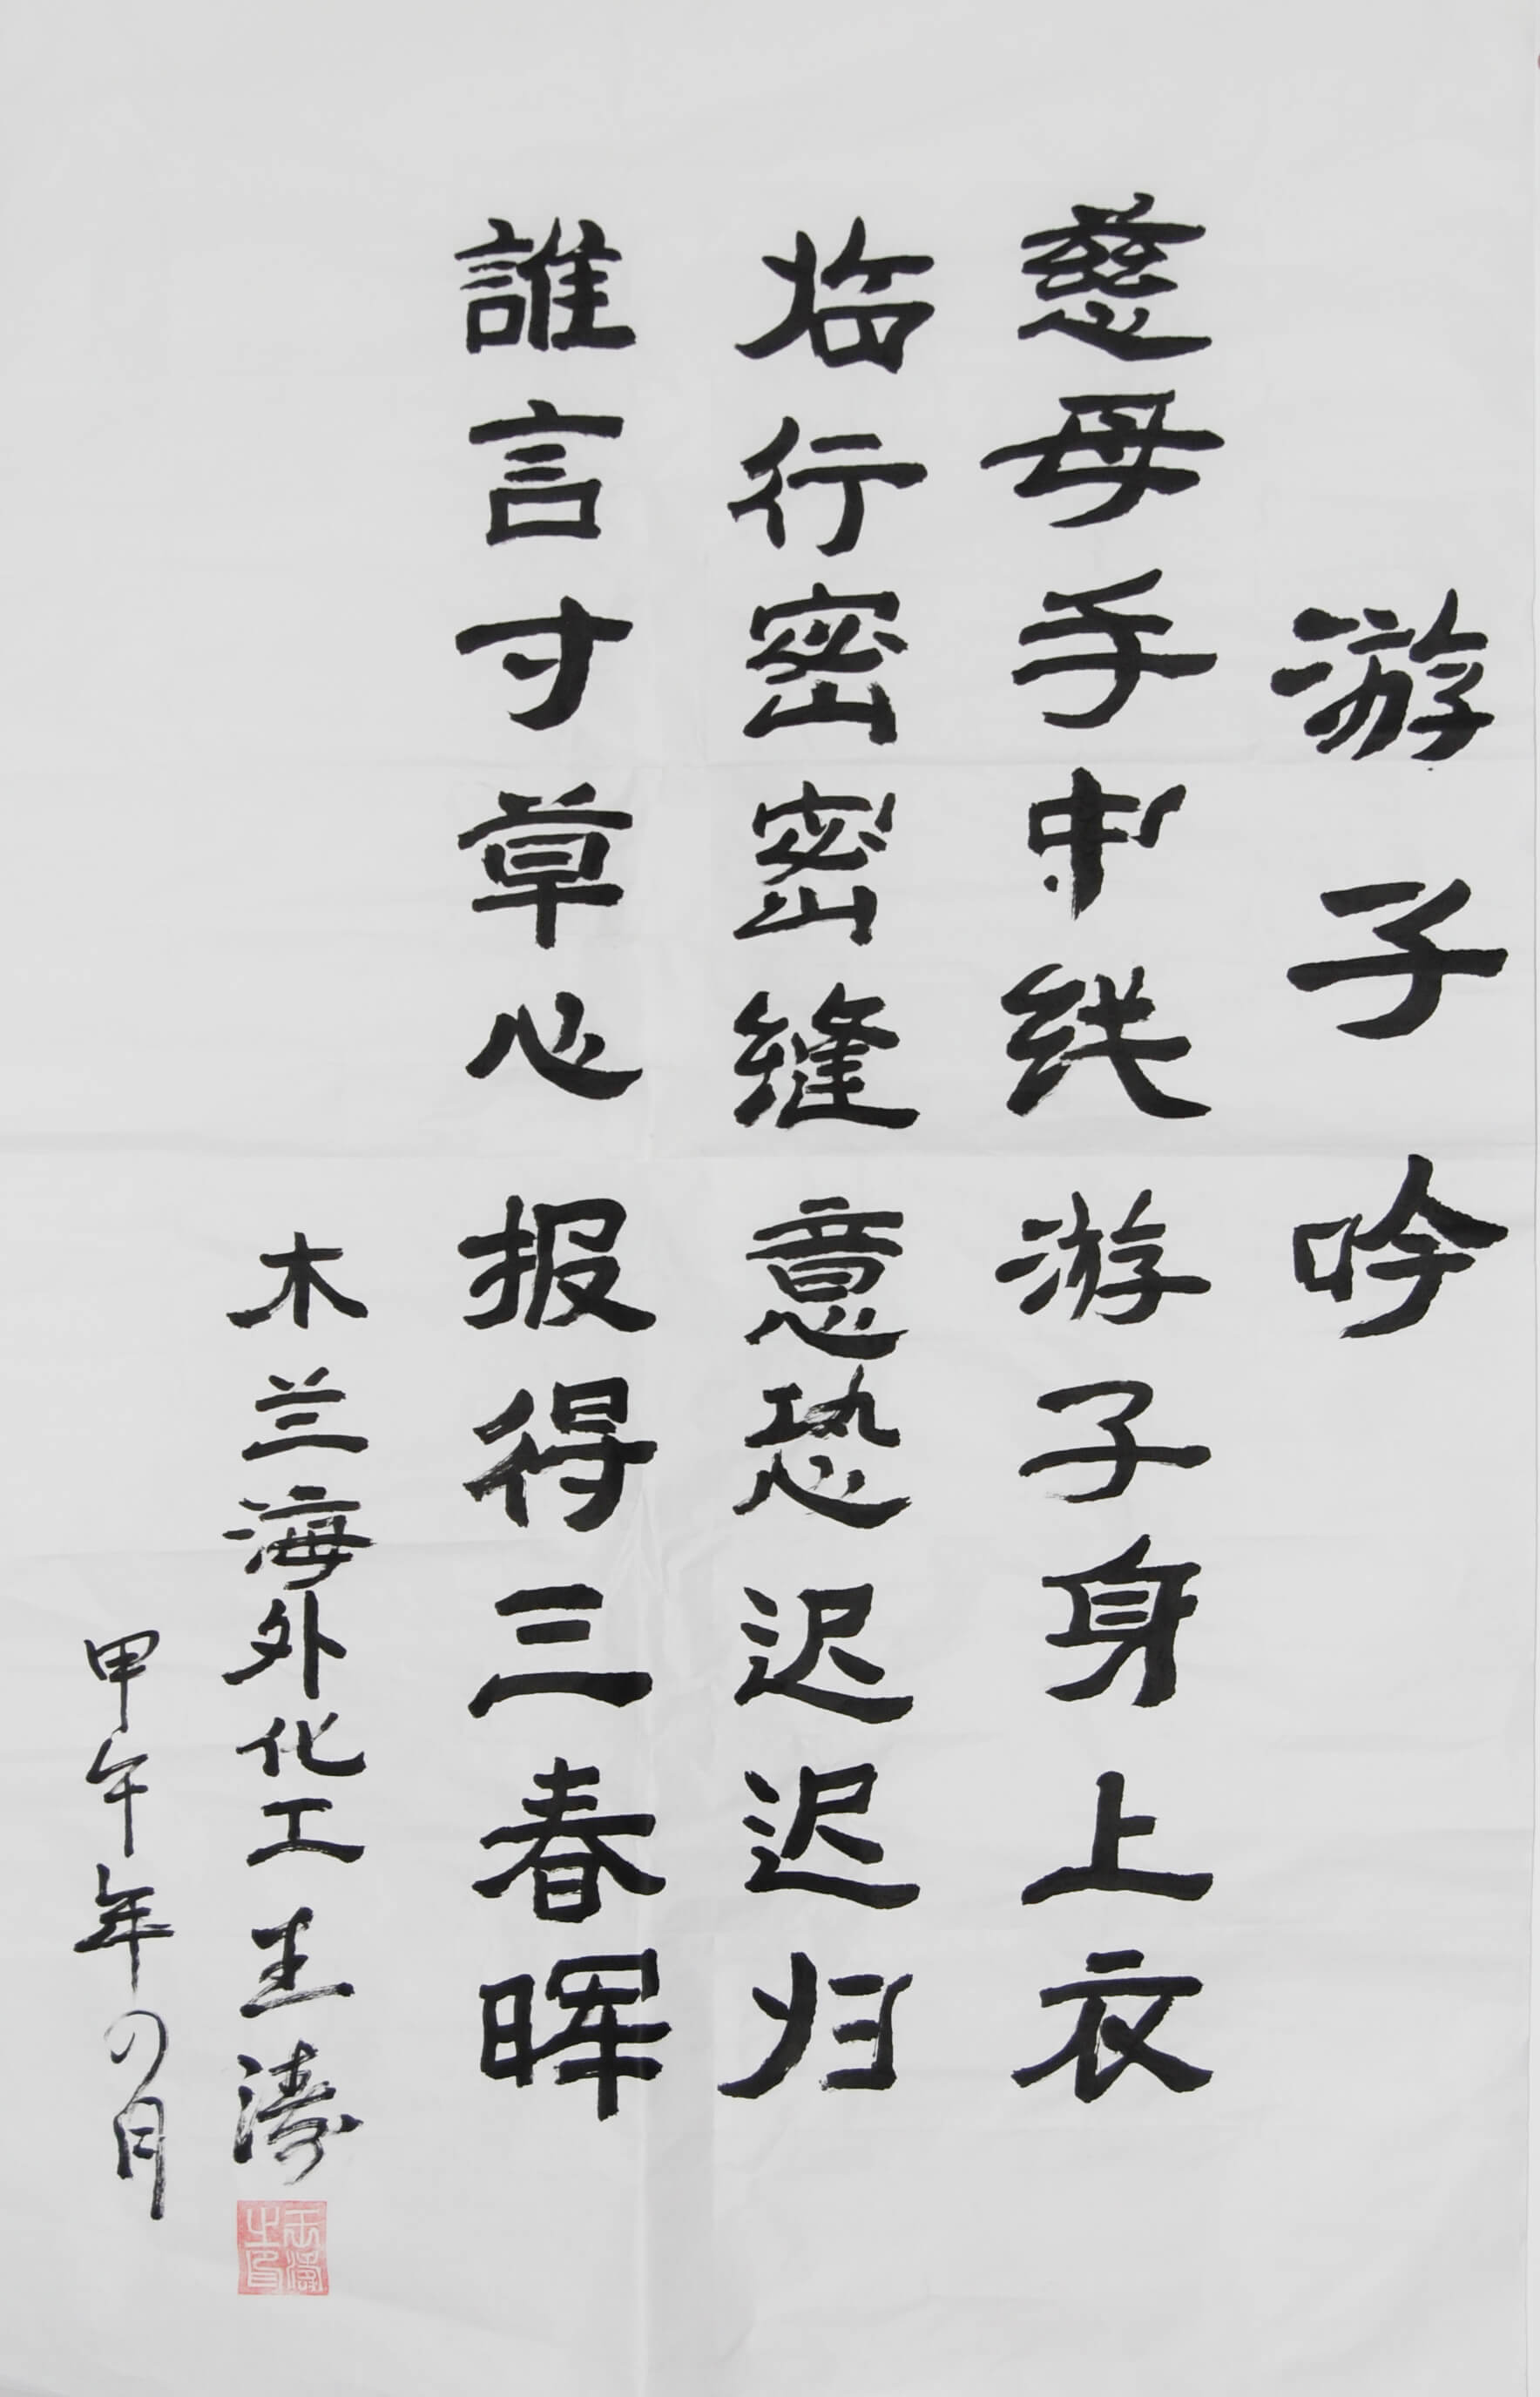 游子吟
慈母手中线 游子身上衣
临行密密缝 意恐迟迟归
誰言寸草心 报得三春晖
木兰海外化工 王涛
甲午年四月
王涛之印